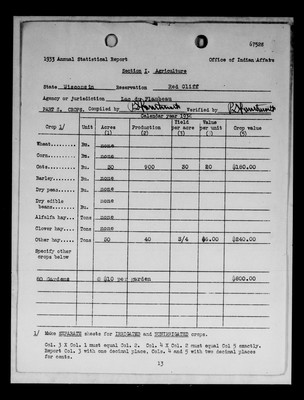 67528
1933 Annual Statistical Report Office of Indian Affairs
Section I. Agriculture
State Wisconsin Reservation Red Cliff
Agency or jurisdiction Lac du Flambeau
PART 2. CROPS. Compiled by Verified by
Calendar year 193
Crop 1/ Unit Acres (1) Production (2) Yield per acre (3) Value per unit (4) Crop value (5)
Wheat........ Bu. none
Corn......... Bu. none
Oats......... Bu. 30 900 30 20 $180.00
Barley....... Bu. none
Dry peas..... Bu. none
Dry edible
beans....... Bu. none
Alfalfa hay... Tons none
Clover hay.... Tons none
Other hay..... Tons 50 40 3/4 $6.00 $240.00
Specify other
crops below
80 Gardens @ $10 per garden $800.00
1/ Make SEPARATE sheets for IRRIGATED and NONIRRIGATED crops.
Col. 3 X Col. 1 must equal Col. 2. Col. 4 X Col. 2 must equal Col 5 exactly.
Report Col. 3 with one decimal place. Cols. 4 and 5 with two decimal places
for cents.
13